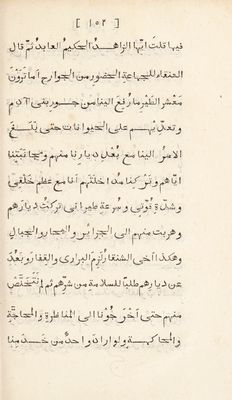 [ ١٥٢ ]
فيها قلت ايّها الزاهد الحكيم العابد ثم قال
العنقاء للجماعة الحضور من الجوارح أما ترون
معشر الطير ما رفع الينا من جور بني آدم
وتعدّيهم على الحيوانات حتى بلغ
الامر الينا مع بعد ديارنا منهم ومجانبتنا
ايّاهم وتركنا مداخلتهم انا مع عظم خلقي
وشدّة قوتي وسرعة طيراني تركت ديارهم
وهربت منهم الى الجزائر والبحار والجبال
وهكذا اخي الشنقار لزم البراري والقفار وبعد
عن ديارهم طلبًا للسلامة من شرّهم ثم لم نتخلّص
منهم حتى احرجونا الى المناظرة والمحاجّة
والمحاكمة ولو اراد واحد من خدمنا